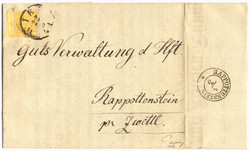 Guts Verwaltung d Hft.
Rappottenstein
pr Zwettl.
RAPPOTTENSTEIN